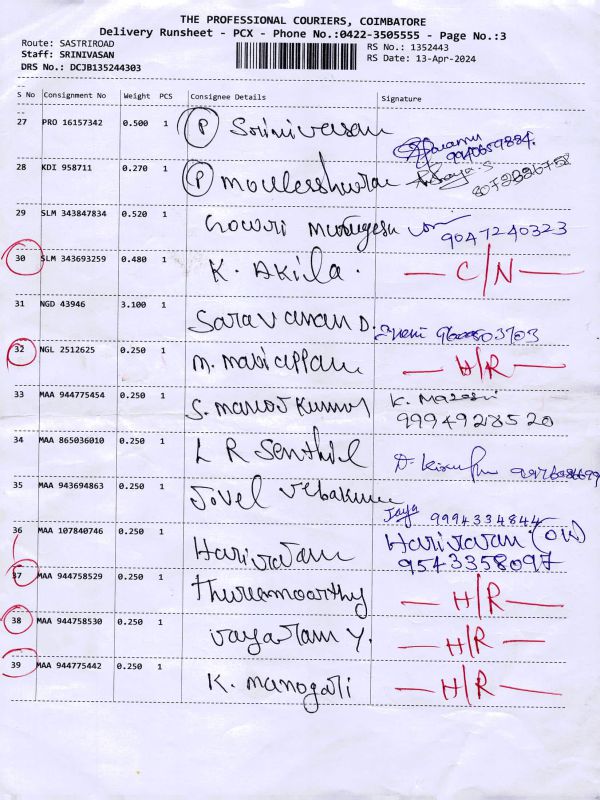 THE PROFESSIONAL COURIERS, COIMBATORE
Delivery Runsheet - PCX - Phone No.:0422-3505555 - Page No.:3
Route: SASTRIROAD
Staff: SRINIVASAN
DRS No.: DCJB135244303
RS No.: 1352443
RS Date: 13-Apr-2024
S No Consignment No Weight PCS Consignee Details Signature
27 PRO 16157342 0.500 1 (P) Srinivasan 9940659884
28 KDI 958711 0.270 1 (P)
29 SLM 343847834 0.520 1 Gowri Murugesu 9047240323
30 SLM 343693259 0.480 1 K. Akila. C/N
31 NGD 43946 3.100 1 Saravanan D.
32 NGL 2512625 0.250 1 M. H/R
33 MAA 944775454 0.250 1 S. Manoj Kumar K.
9994928520
34 MAA 865036010 0.250 1 L R Senthil D.
35 MAA 943694863 0.250 1 Jaya 9994334844
36 MAA 107840746 0.250 1 Hariharan (OW)
9543358097
37 MAA 944758529 0.250 1 H/R
38 MAA 944758530 0.250 1 Y. H/R
39 MAA 944775442 0.250 1 K. Manogari H/R